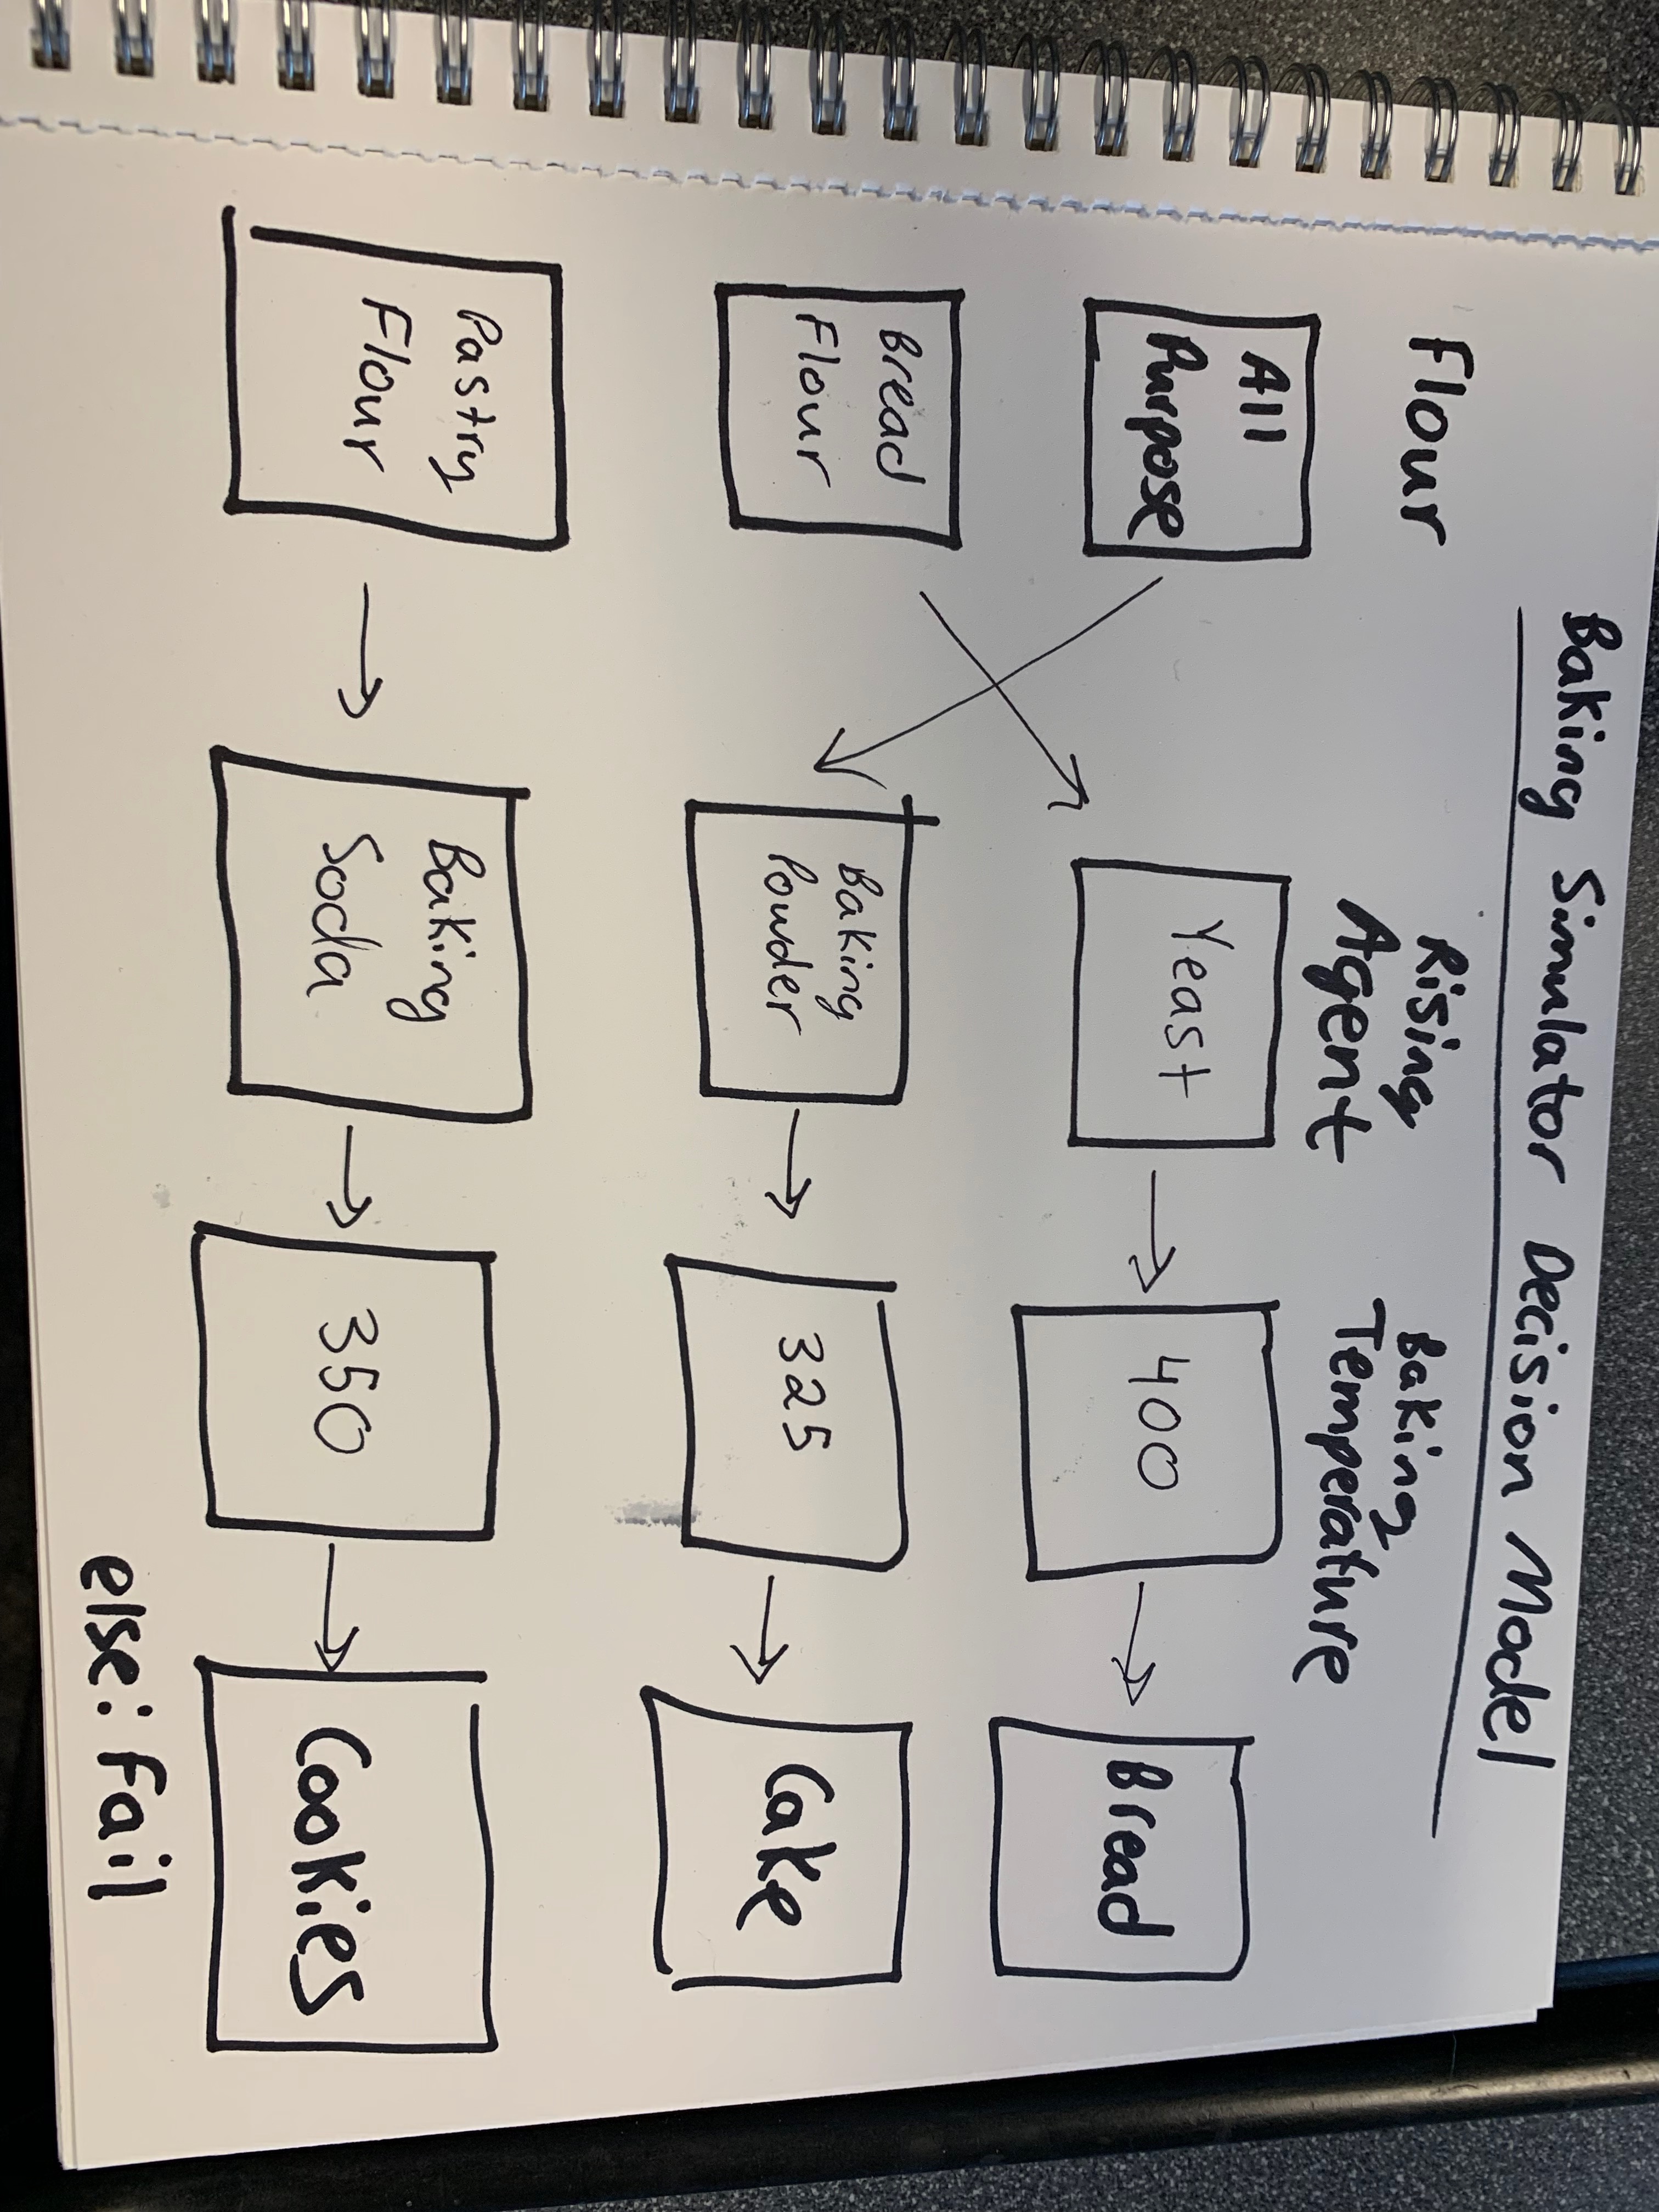 Baking Simulator Decision Model
Flour
Rising
Agent
Baking
Temperature
All
Purpose
Yeast
400
Bread
Bread
Flour
Baking
Powder
325
Cake
Pastry
Flour
Baking
Soda
350
Cookies
else: Fail